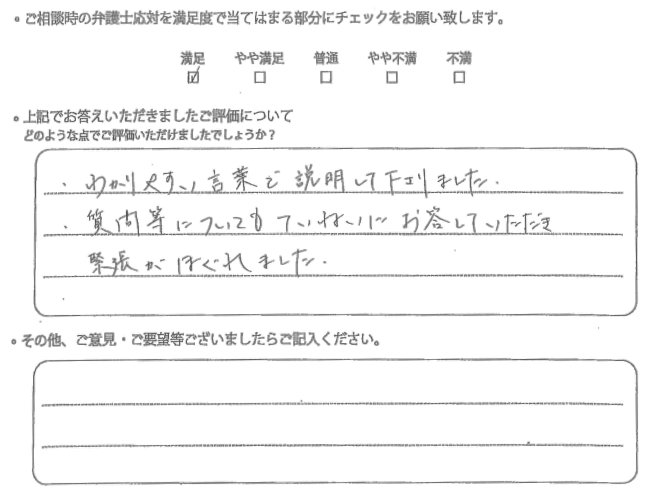 。ご相談時の弁護士応対を満足度で当てはまる部分にチェックをお願い致します。
満足 やや満足 普通 やや不満 不満
☑ □ □ □ □
。上記でお答えいただきましたご評価について
どのような点でご評価いただけましたでしょうか？
・わかりやすい言葉で説明して下さりました.
・質問等についてもていねいにお答していただき
緊張がほぐれました.
。その他、ご意見・ご要望等ございましたらご記入ください。